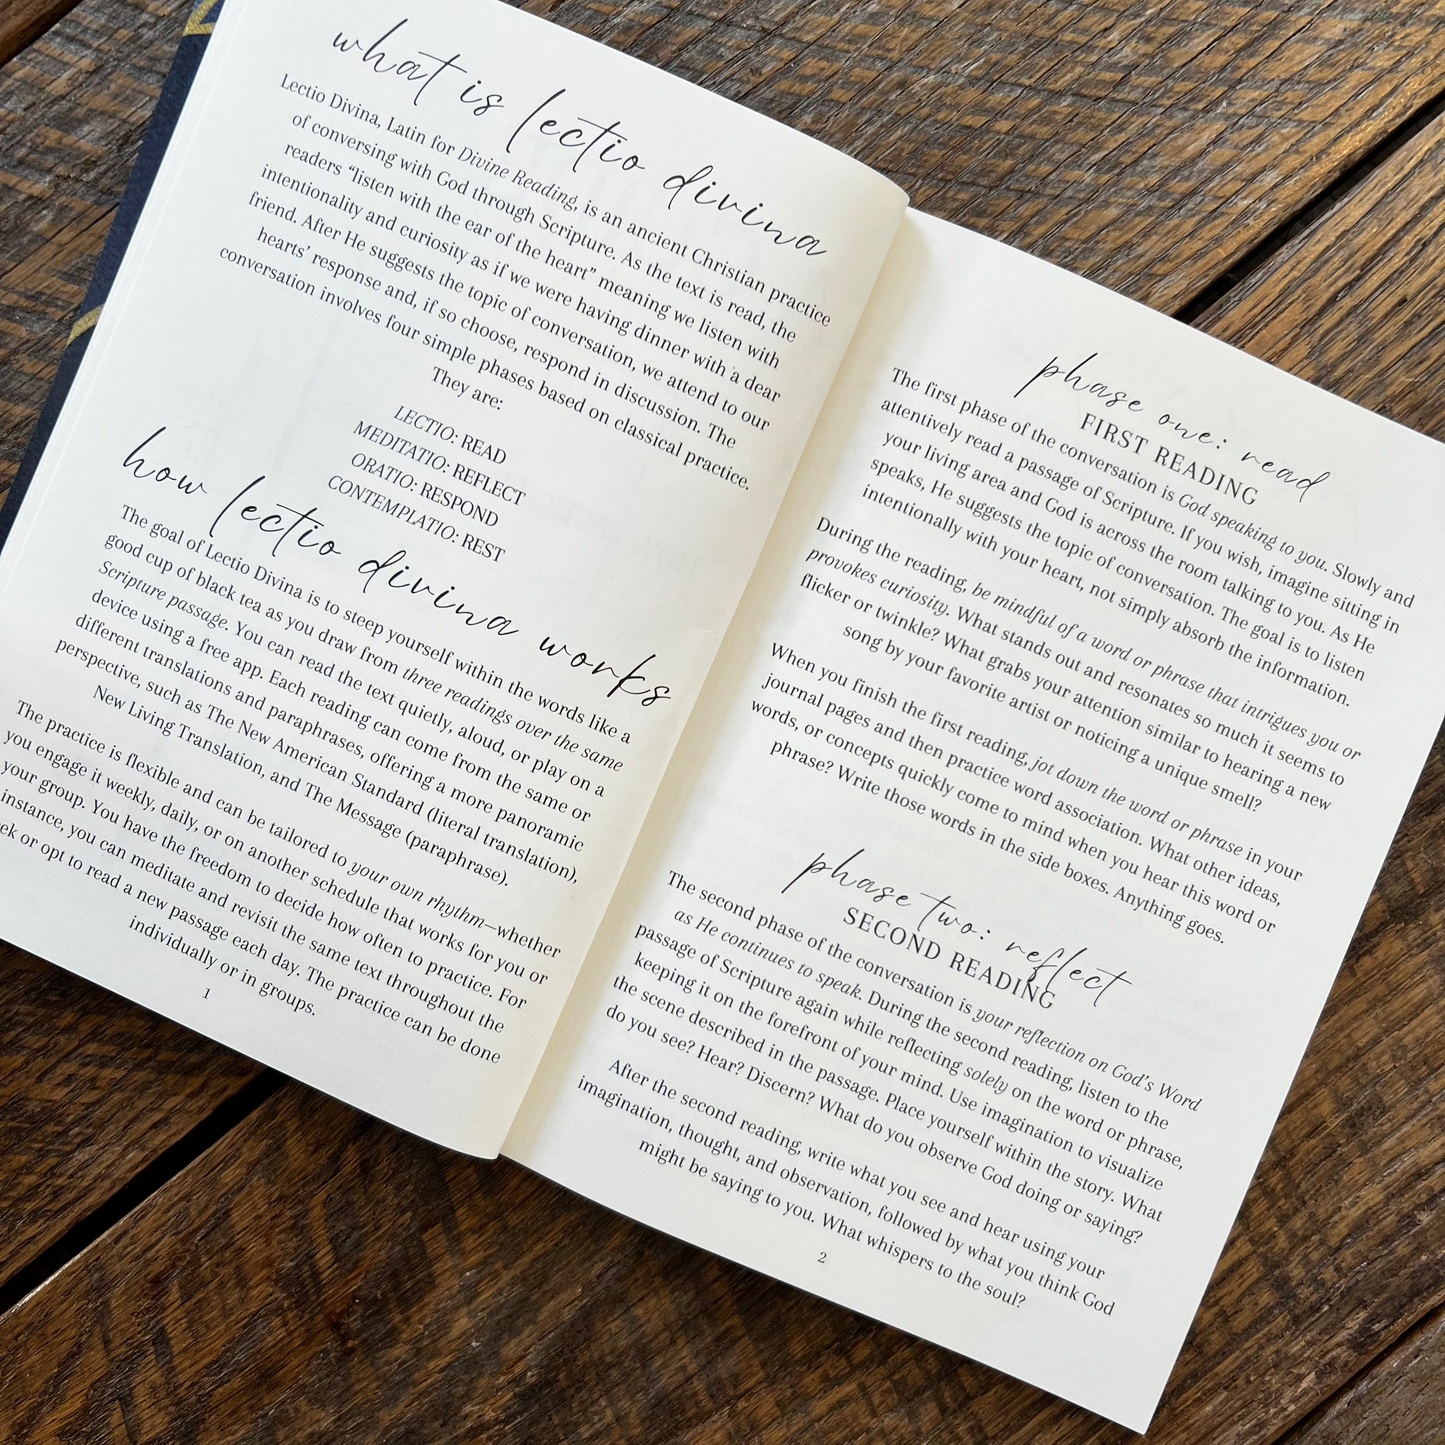 what is lectio divina
Lectio Divina, Latin for Divine Reading, is an ancient Christian practice
of conversing with God through Scripture. As the text is read, the
readers “listen with the ear of the heart” meaning we listen with
intentionality and curiosity as if we were having dinner with a dear
friend. After He suggests the topic of conversation, we attend to our
hearts’ response and, if so choose, respond in discussion. The
conversation involves four simple phases based on classical practice.
They are:
LECTIO: READ
MEDITATIO: REFLECT
ORATIO: RESPOND
CONTEMPLATIO: REST
how lectio divina works
The goal of Lectio Divina is to steep yourself within the words like a
good cup of black tea as you draw from three readings over the same
Scripture passage. You can read the text quietly, aloud, or play on a
device using a free app. Each reading can come from the same or
different translations and paraphrases, offering a more panoramic
perspective, such as The New American Standard (literal translation),
New Living Translation, and The Message (paraphrase).
The practice is flexible and can be tailored to your own rhythm—whether
you engage it weekly, daily, or on another schedule that works for you or
your group. You have the freedom to decide how often to practice. For
instance, you can meditate and revisit the same text throughout the
or opt to read a new passage each day. The practice can be done
individually or in groups.
1
phase one: read
FIRST READING
The first phase of the conversation is God speaking to you. Slowly and
attentively read a passage of Scripture. If you wish, imagine sitting in
your living area and God is across the room talking to you. As He
speaks, He suggests the topic of conversation. The goal is to listen
intentionally with your heart, not simply absorb the information.
During the reading, be mindful of a word or phrase that intrigues you or
provokes curiosity. What stands out and resonates so much it seems to
flicker or twinkle? What grabs your attention similar to hearing a new
song by your favorite artist or noticing a unique smell?
When you finish the first reading, jot down the word or phrase in your
journal pages and then practice word association. What other ideas,
words, or concepts quickly come to mind when you hear this word or
phrase? Write those words in the side boxes. Anything goes.
phase two: reflect
SECOND READING
The second phase of the conversation is your reflection on God’s Word
as He continues to speak. During the second reading, listen to the
passage of Scripture again while reflecting solely on the word or phrase,
keeping it on the forefront of your mind. Use imagination to visualize
the scene described in the passage. Place yourself within the story. What
do you see? Hear? Discern? What do you observe God doing or saying?
After the second reading, write what you see and hear using your
imagination, thought, and observation, followed by what you think God
might be saying to you. What whispers to the soul?
2